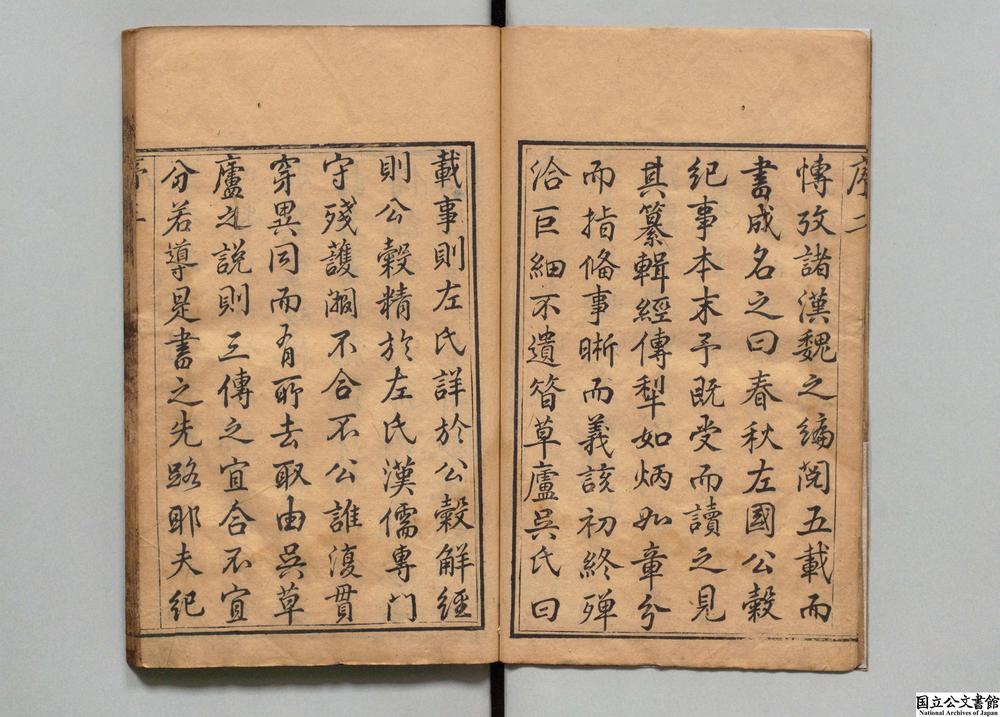 序二
慱攷諸漢魏之編閱五載而
書成名之曰春秋左國公穀
紀事本末予既受而讀之見
其纂輯經傳犁如炳如章分
而指偹事晰而義該初終殫
洽巨細不遺昝草廬吳氏曰
載事則左氏詳於公穀解經
則公穀精於左氏漢儒專門
守殘護㵎不合不公誰復貫
穿異同而有所去取由吳草
廬之説則三傳之宜合不宜
分若導是書之先路耶夫紀
国立公文書館
National Archives of Japan